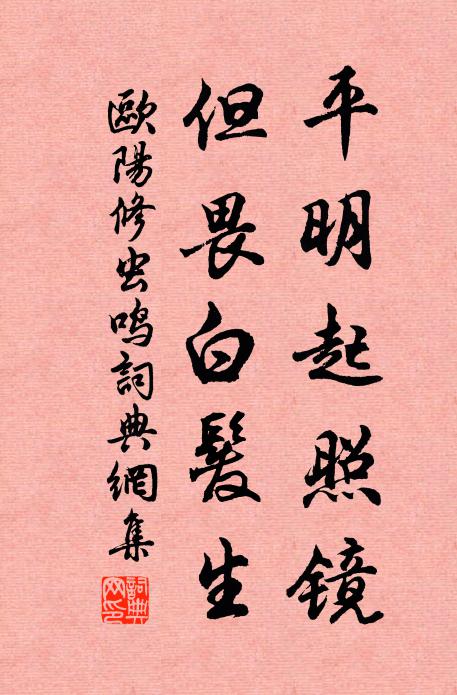 平明起照鏡
但畏白髮生
歐陽修虫鸣詞典網集
詞典
网印